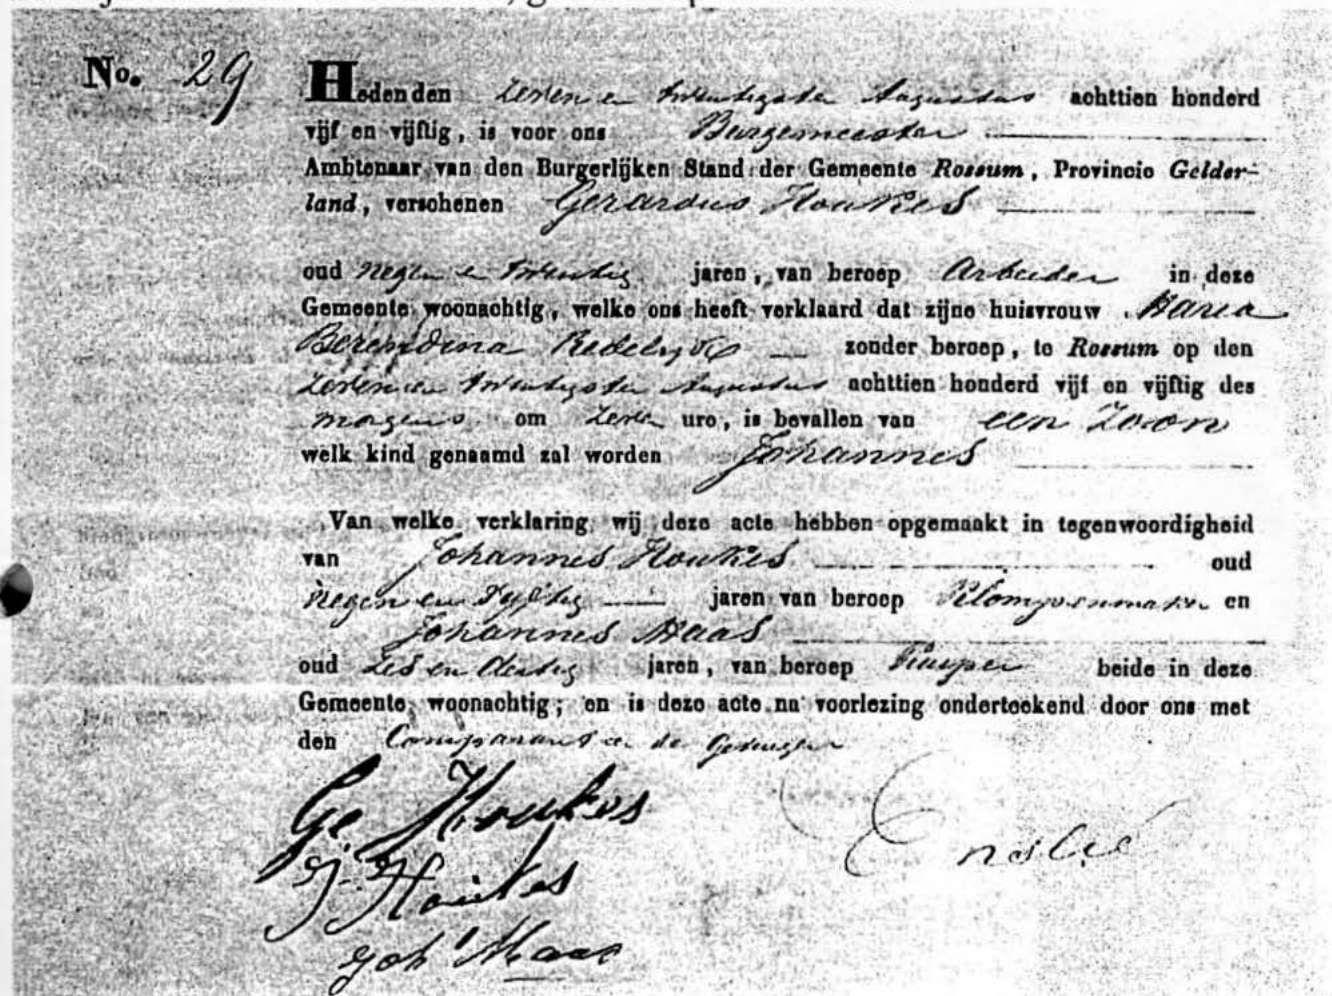 No. 29
Heden den zeven en twintigsten Augustus achttien honderd
vijf en vijftig, is voor ons Burgemeester
Ambtenaar van den Burgerlijken Stand der Gemeente Rossum, Provincie Gelder-
land, verschenen Gerardus Houkes
oud negen en twintig jaren, van beroep Arbeider in deze
Gemeente woonachtig, welke ons heeft verklaard dat zijne huisvrouw Maria
Berendina zonder beroep, te Rossum op den
zeven en twintigsten Augustus achttien honderd vijf en vijftig des
morgens om zeven ure, is bevallen van een Zoon
welk kind genaamd zal worden Johannes
Van welke verklaring wij deze acte hebben opgemaakt in tegenwoordigheid
van Johannes Houkes oud
negen en vijftig jaren van beroep Klompenmaker en
Johannes Maas
oud zes en dertig jaren, van beroep beide in deze
Gemeente woonachtig; en is deze acte na voorlezing onderteekend door ons met
den Comparant en de getuigen
Ge Houkes
J Houkes
Joh Maas